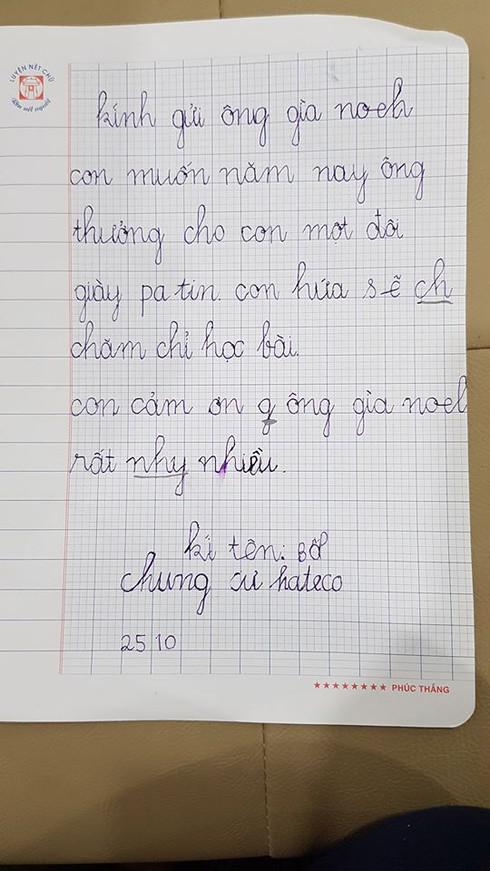 LUYỆN NÉT CHỮ
Rèn nết người
kính gửi ông gìa noeh
con muốn năm nay ông
thưởng cho con một đôi
giày pa tin. con hứa sẽ ch
chăm chỉ học bài.
con cảm ơn g ông gìa noel
rất nhy nhiều.
kí tên: BỐP
chung cư hateco
25 10
★★★★★★★★ PHÚC THẮNG